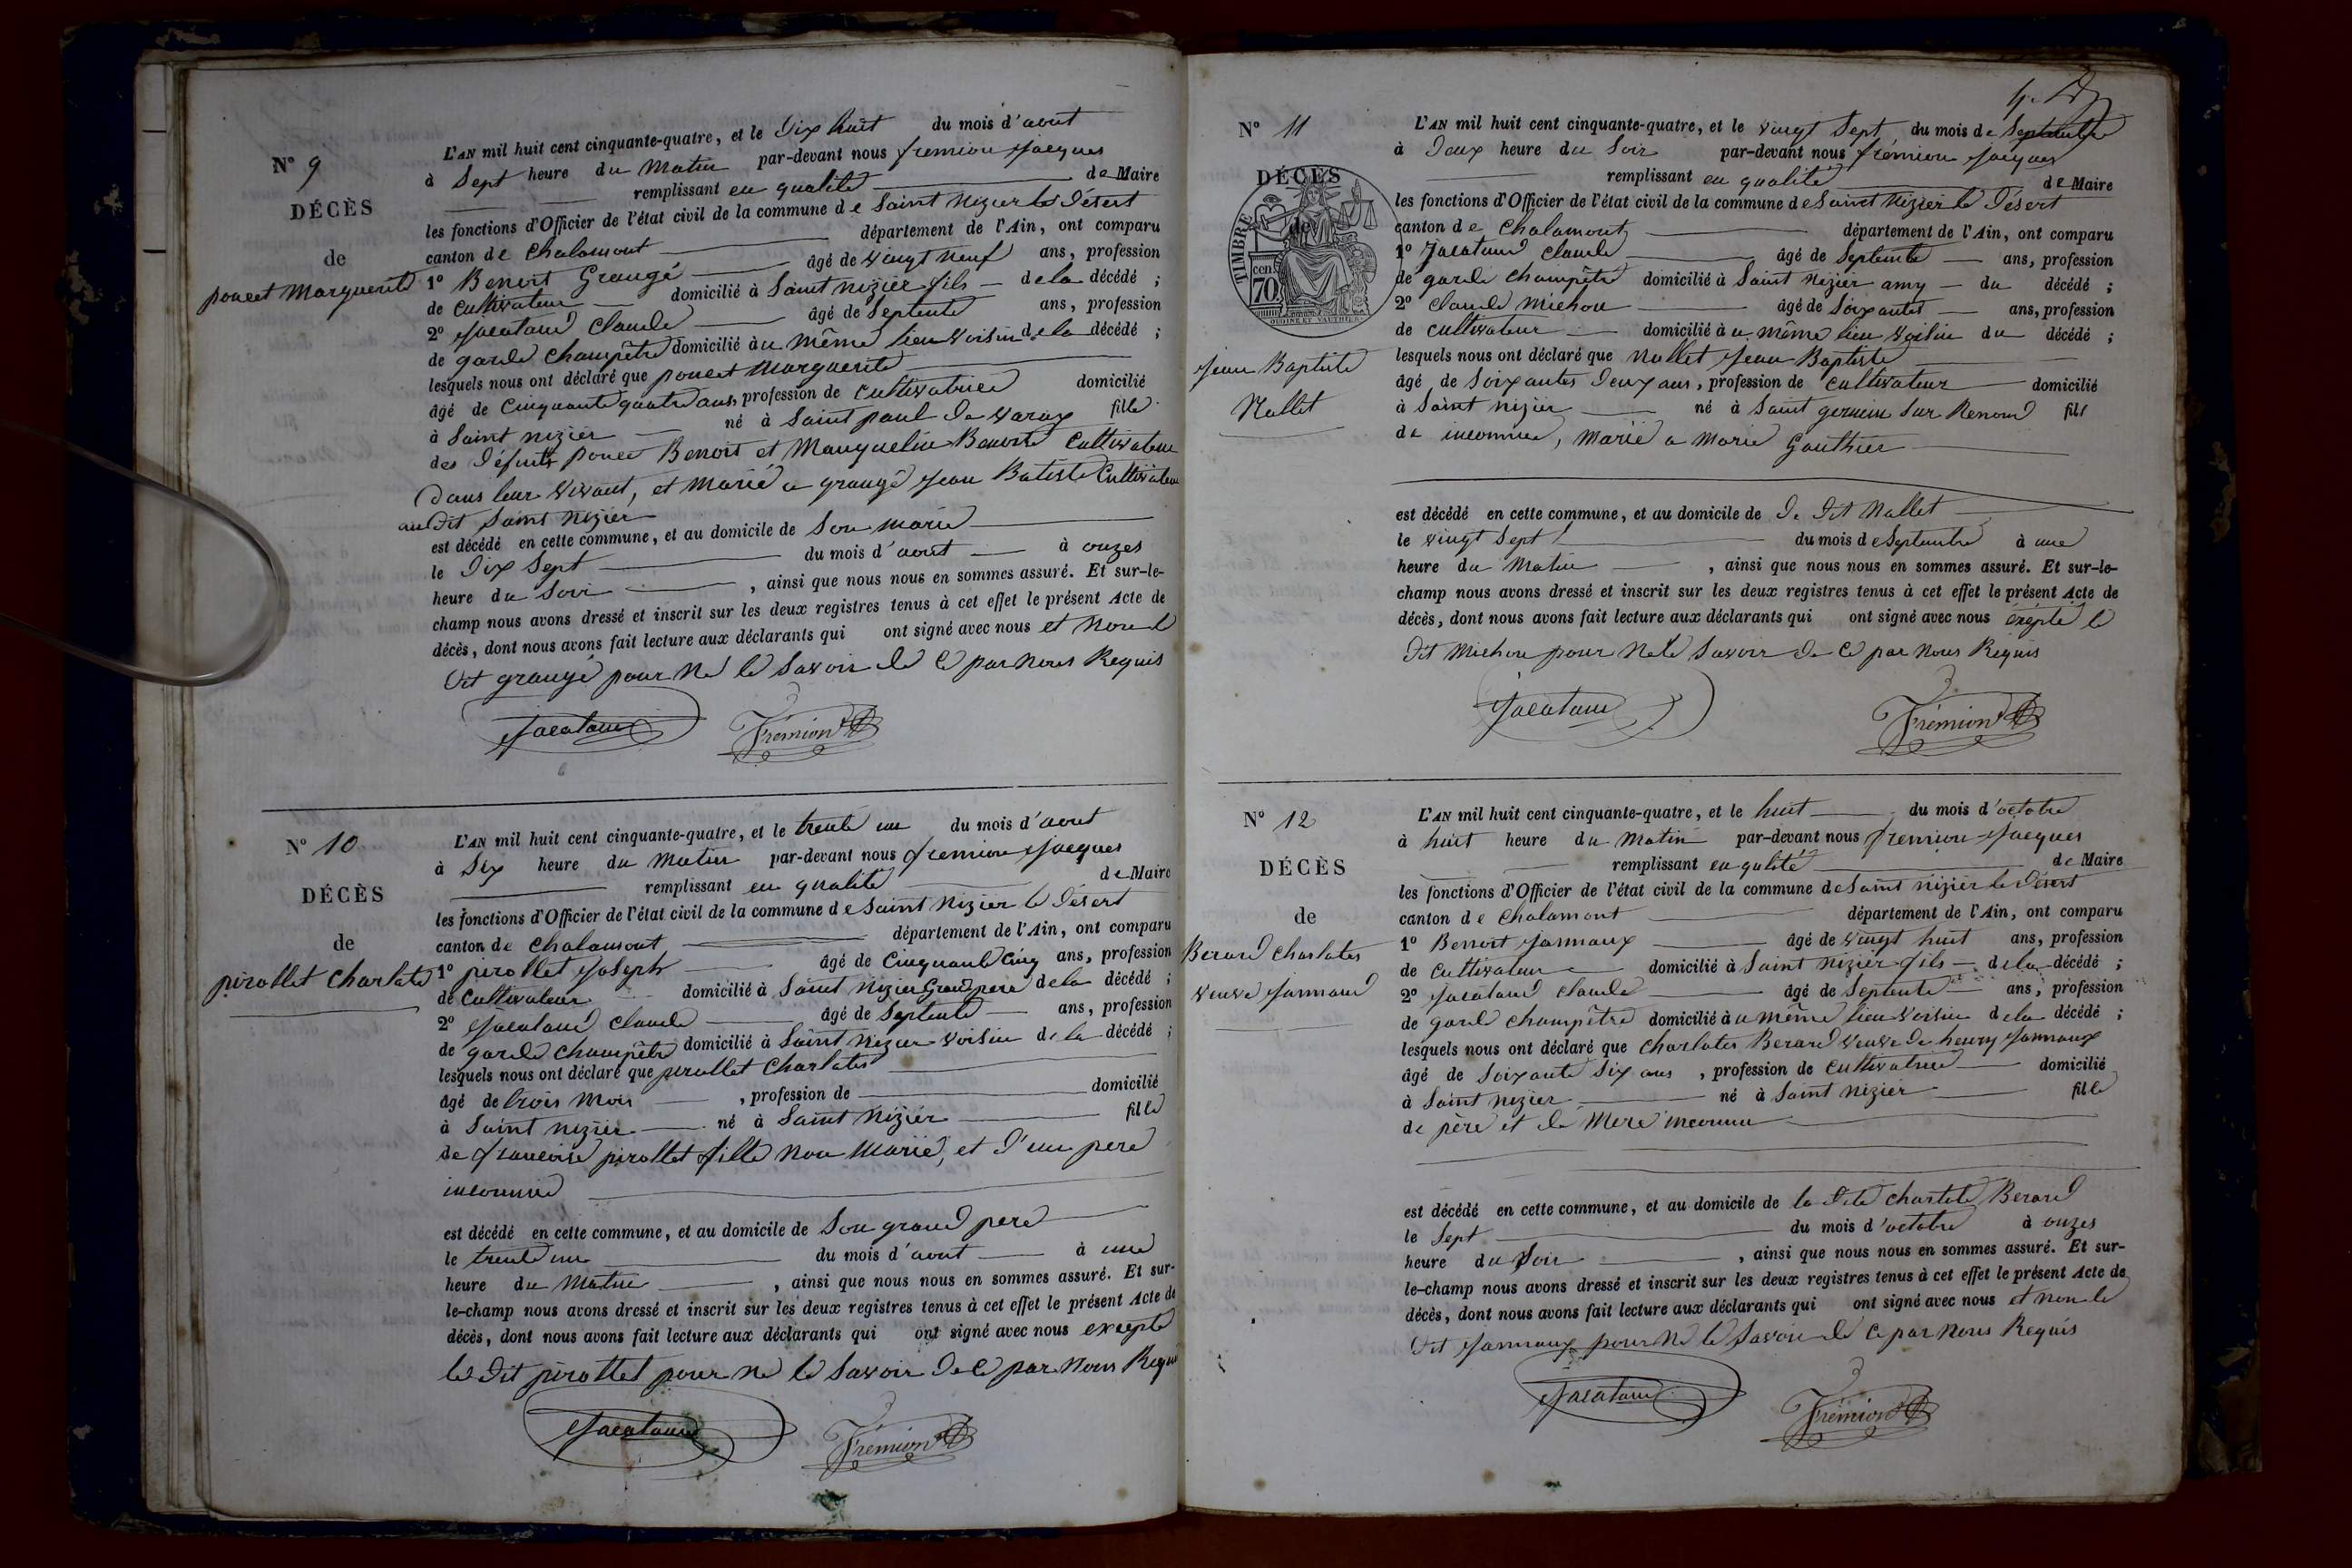 N° 9
DÉCÈS
de
poncet Marguerite
L'AN mil huit cent cinquante-quatre, et le Dix huit du mois d'aout
à Sept heure du Matin par-devant nous fremion Jacques
remplissant en qualité de Maire
les fonctions d'Officier de l'état civil de la commune de Saint Nizier le Désert
canton de Chalamont département de l'Ain, ont comparu
1° Benoit Grangé âgé de vingt neuf ans, profession
de Cultivateur domicilié à Saint nizier fils de la décédé ;
2° Jacataud Claude âgé de Septente ans, profession
de garde Champêtre domicilié à u même lieu voisin de la décédé ;
lesquels nous ont déclaré que poncet Marguerite
âgé de Cinquante quatre ans, profession de Cultivatrice domicilié
à Saint nizier né à Saint paul de varax fille
des défunts poncet Benoit et Manguelin Benoite Cultivateur
Dans leur vivant, et marié a grangé Jean Batiste Cultivateur
au dit Saint Nizier
est décédé en cette commune, et au domicile de Son marie
le Dix Sept du mois d'aout à onzes
heure du Soir , ainsi que nous nous en sommes assuré. Et sur-le-
champ nous avons dressé et inscrit sur les deux registres tenus à cet effet le présent Acte de
décès, dont nous avons fait lecture aux déclarants qui ont signé avec nous et non le
Dit grangé pour ne le Savoir de ce par nous Requis
Jacataud Frémion
N° 10
DÉCÈS
de
pirollet Charlate
L'AN mil huit cent cinquante-quatre, et le trente un du mois d'aout
à Six heure du Matin par-devant nous fremion Jacques
remplissant en qualité de Maire
les fonctions d'Officier de l'état civil de la commune de Saint Nizier le Désert
canton de Chalamont département de l'Ain, ont comparu
1° pirollet Joseph âgé de Cinquante Cinq ans, profession
de Cultivateur domicilié à Saint Nizier Grand pere de la décédé ;
2° Jacataud Claude âgé de Septente ans, profession
de garde Champêtre domicilié à Saint Nizier voisin de la décédé ;
lesquels nous ont déclaré que pirollet Charlates
âgé de trois mois , profession de domicilié
à Saint nizier né à Saint Nizier fille
de francoise pirollet fille non Marié, et d'un pere
inconnue
est décédé en cette commune, et au domicile de Son grand pere
le trente un du mois d'aout à une
heure du Matin , ainsi que nous nous en sommes assuré. Et sur-
le-champ nous avons dressé et inscrit sur les deux registres tenus à cet effet le présent Acte de
décès, dont nous avons fait lecture aux déclarants qui ont signé avec nous excepte
le Dit pirollet pour ne le Savoir de ce par nous Requis
Jacataud Frémion
N° 11
DÉCÈS
de
TIMBRE
70 cen
OUDINE ET VAUTHIER
Jean Baptiste
Nallet
L'AN mil huit cent cinquante-quatre, et le vingt Sept du mois de Septembre
à Deux heure du Soir par-devant nous frémion Jacques
remplissant en qualité de Maire
les fonctions d'Officier de l'état civil de la commune de Saint Nizier le Désert
canton de Chalamont département de l'Ain, ont comparu
1° Jacataud Claude âgé de Septente ans, profession
de garde Champêtre domicilié à Saint Nizier amy du décédé ;
2° Claude Michon âgé de Soixantes ans, profession
de Cultivateur domicilié à u même lieu voisin du décédé ;
lesquels nous ont déclaré que Nallet Jean Baptiste
âgé de Soixantes Deux ans, profession de Cultivateur domicilié
à Saint nizier né à Saint germein Sur Renond fils
de inconnue, Marié a Marie Gauthier
est décédé en cette commune, et au domicile de Du Dit Nallet
le vingt Sept du mois de Septembre à une
heure du Matin , ainsi que nous nous en sommes assuré. Et sur-le-
champ nous avons dressé et inscrit sur les deux registres tenus à cet effet le présent Acte de
décès, dont nous avons fait lecture aux déclarants qui ont signé avec nous éxépte le
Dit Michon pour Ne le Savoir de ce par Nous Requis
Jacataud Frémion
N° 12
DÉCÈS
de
Berard Charlates
veuve Jannaud
L'AN mil huit cent cinquante-quatre, et le huit du mois d'octobre
à huit heure du Matin par-devant nous fremion Jacques
remplissant en qalité de Maire
les fonctions d'Officier de l'état civil de la commune de Saint Nizier le Désert
canton de Chalamont département de l'Ain, ont comparu
1° Benoit Jannaux âgé de vingt huit ans, profession
de Cultivateur domicilié à Saint Nizier fils de la décédé ;
2° Jacataud Claude âgé de Septente ans, profession
de garde Champêtre domicilié à u même lieu voisin de la décédé ;
lesquels nous ont déclaré que Charlates Berard veuve de henry Jannaux
âgé de Soixante Six ans , profession de Cultivatrice domicilié
à Saint nizier né à Saint Nizier fille
de père et de Mere inconnu
est décédé en cette commune, et au domicile de la Dite Charlate Berard
le Sept du mois d'octobre à onzes
heure du Soir , ainsi que nous nous en sommes assuré. Et sur-
le-champ nous avons dressé et inscrit sur les deux registres tenus à cet effet le présent Acte de
décès, dont nous avons fait lecture aux déclarants qui ont signé avec nous et non le
Dit Jannaux pour Ne le Savoir de ce par nous Requis
Jacataud Frémion